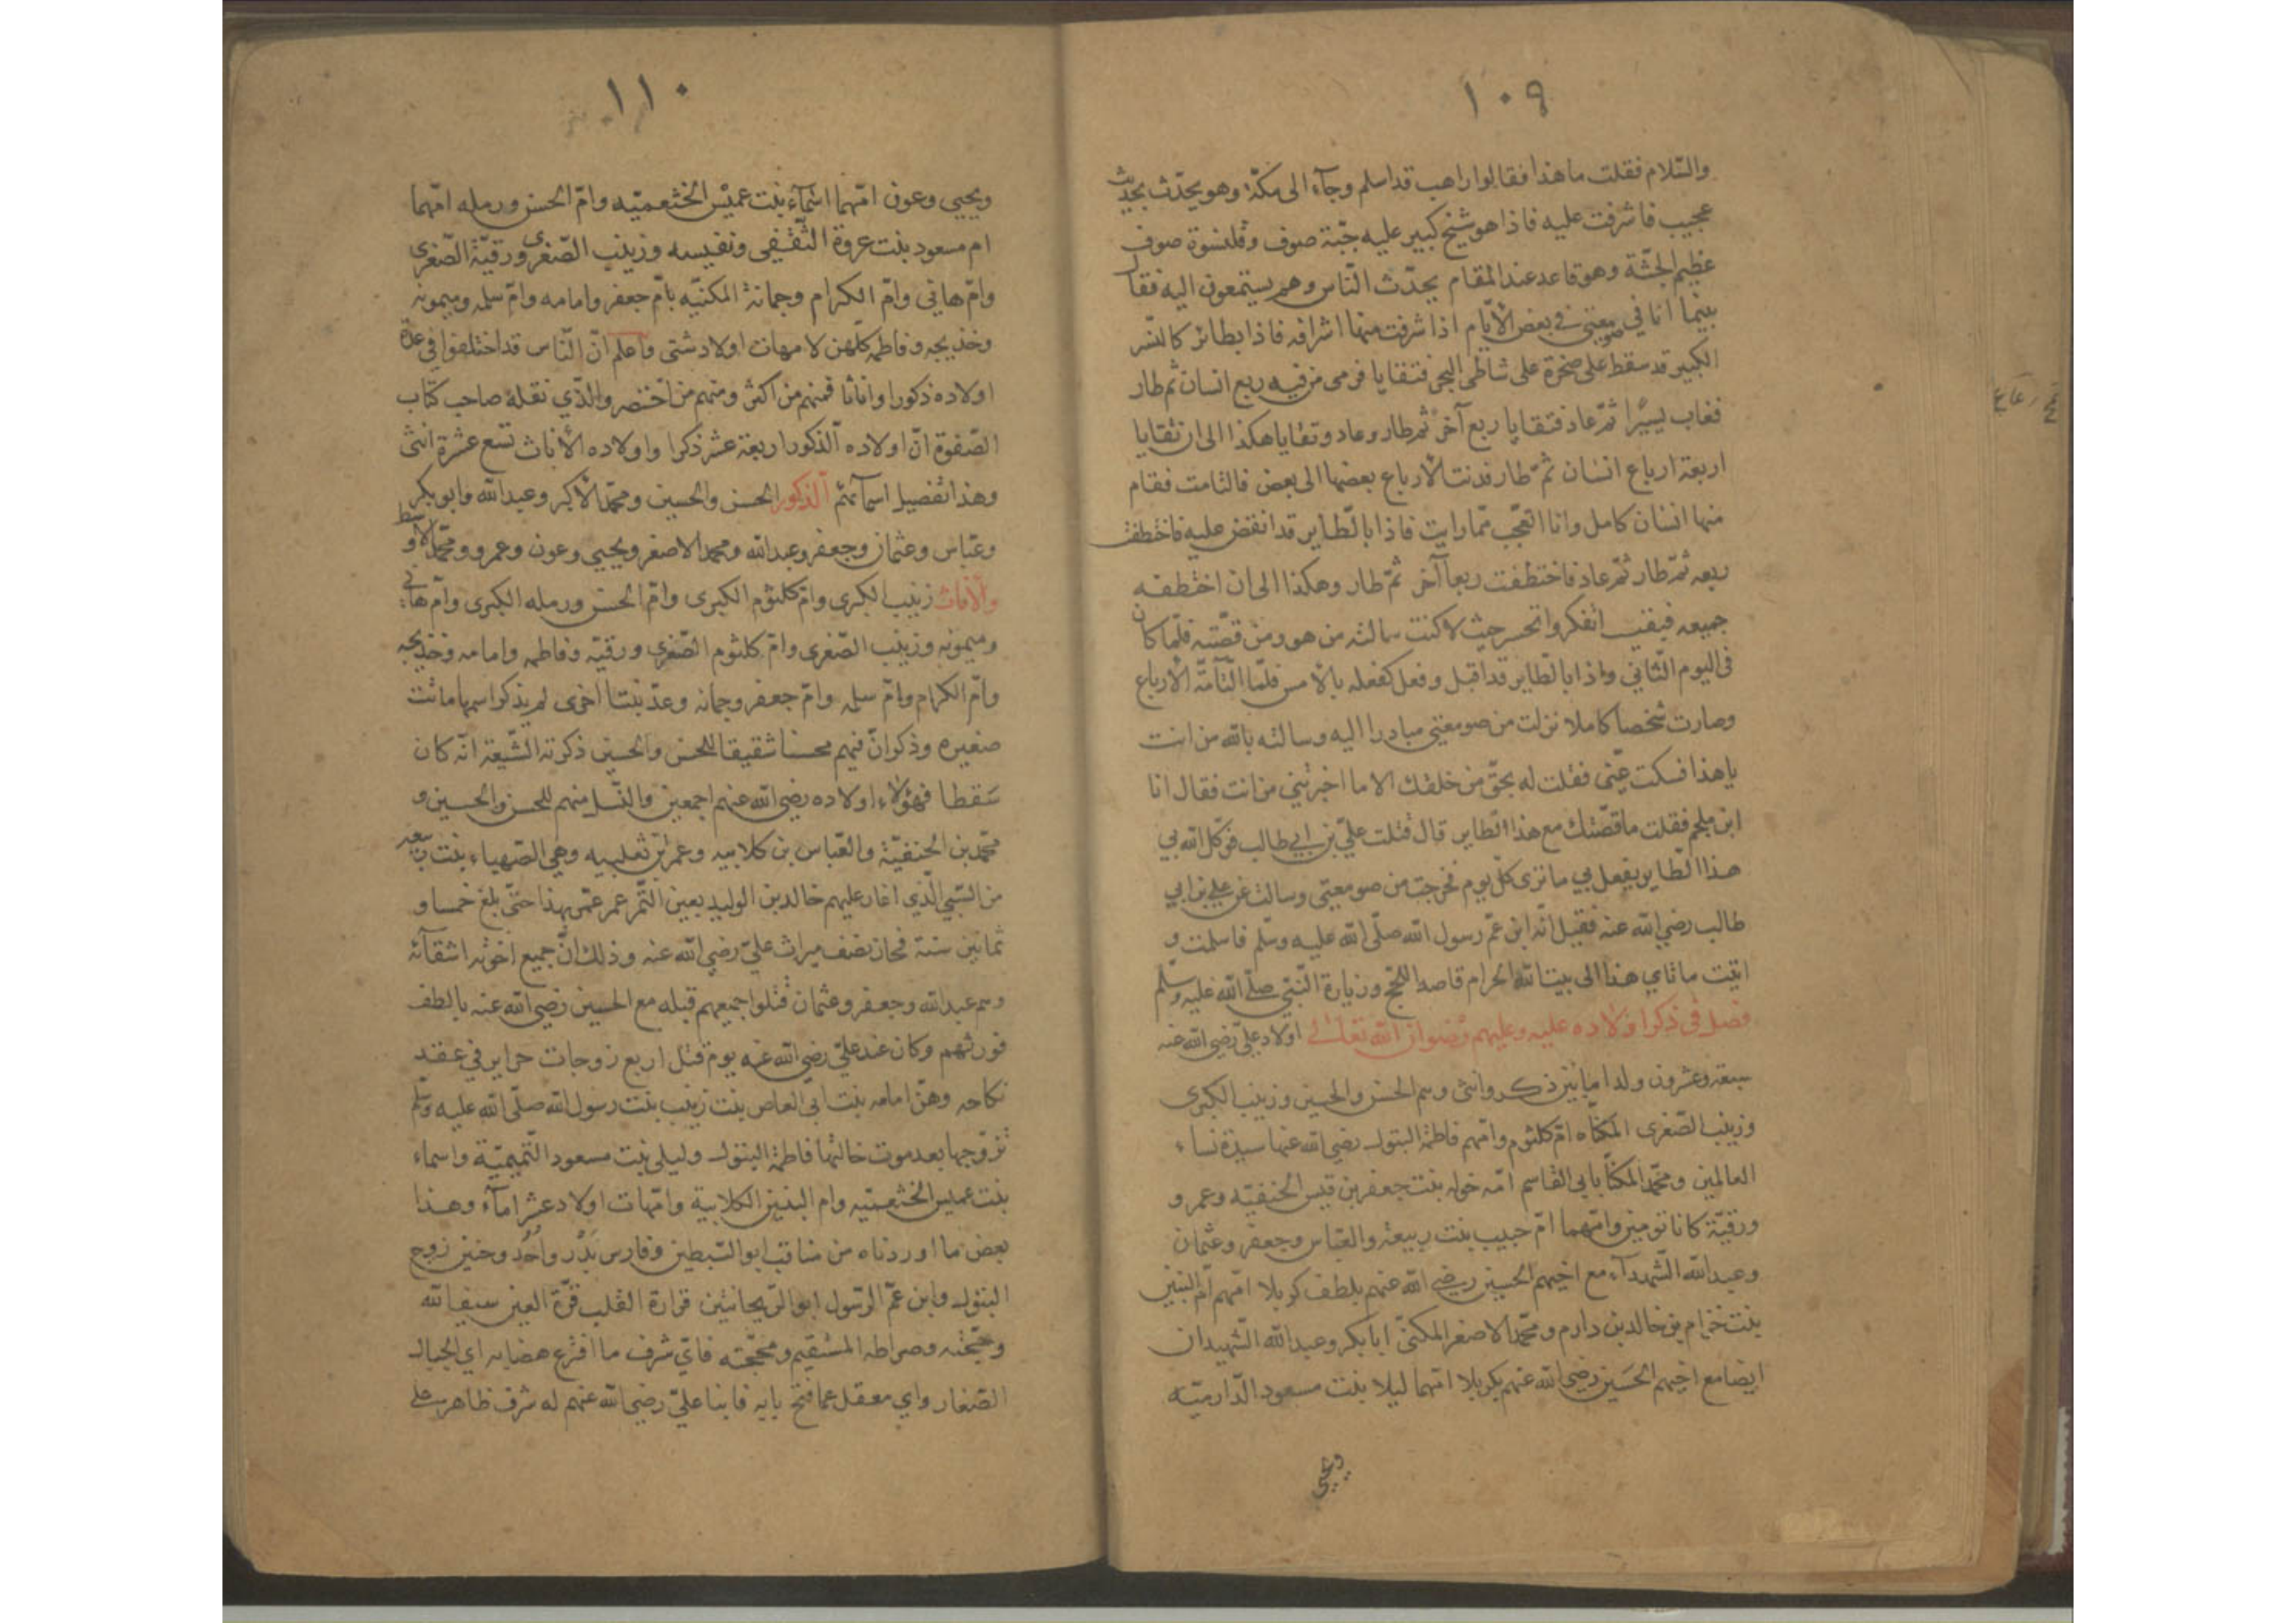 ١٠٩
والسّلام فقلت ما هذا فقالوا راهب قد اسلم وجآء الى مكّة وهو يحدّث بحديث
عجيب فاشرفت عليه فاذا هو شيخ كبير عليه جبّة صوف وقلنسوة صوف
عظيم الجثّة وهو قاعد عند المقام يحدّث النّاس وهم يستمعون اليه فقال
بينما انا في صومعتي في بعض الأيّام اذ اشرفت منها اشرافه فاذا بطائر كالنّسر
الكبير قد سقط على صخرة على شاطئ البحر فتقايا فرمى من فيه ربع انسان ثم طار
فغاب يسيرًا ثمّ عاد فتقايا ربع آخر ثم طار وعاد وتقايا هكذا الى ان تقايا
اربعة ارباع انسان ثمّ طار فدنت الأرباع بعضها الى بعض فالتامت فقام
منها انسان كامل وانا اتعجّب ممّا رايت فاذا بالطّاير قد انقض عليه فاختطف
ربعه ثمّ طار ثمّ عاد فاختطفت ربعا آخر ثمّ طار وهكذا الى ان اختطفه
جميعه فبقيت اتفكر واتحسر حيث لا كنت سالته من هو ومن قصّته فلمّا كان
فى اليوم الثّاني واذا بالطّاير قد اقبل وفعل كفعله بالأمس فلمّا التأمّة الأرباع
وصارت شخصا كاملا نزلت من صومعتي مبادرا اليه وسالته بالله من انت
يا هذا فسكت عنّى فقلت له بحقّ من خلقك الا ما اخبرتني من انت فقال انا
ابن ملجم فقلت ما قصّتك مع هذا الطاير قال قتلت عليّ بن ابي طالب فوكّل الله بي
هذا الطّاير يفعل بي ما ترى كلّ يوم فخرجت من صومعتى وسالت عن علي بن ابي
طالب رضي الله عنه فقيل انّه ابن عمّ رسول الله صلّى الله عليه وسلّم فاسلمت و
اتيت ماتاي هذا الى بيت الله الحرام قاصد الحجّ وزيارة النّبيّ صلّى الله عليه وسلّم
فصل في ذكر اولاده عليه وعليهم رضوان الله تعالى اولاد عليّ رضي الله عنه
سبعة وعشرون ولدا ما بين ذكر وانثى وهم الحسن والحسين وزينب الكبرى
وزينب الصّغرى المكنّاه امّ كلثوم وامّهم فاطمة البتول رضي الله عنها سيدة نساء
العالمين ومحمّد المكنّا بابي القاسم امّه خوله بنت جعفر بن قيس الحنفيّه وعمر و
ورقيّة كانا تومين وامّهما امّ حبيب بنت ربيعة والعبّاس وجعفر وعثمان
وعبد الله الشّهدآء مع اخيهم الحسين رضي الله عنهم بلطف كربلا امّهم امّ البنين
بنت حزام بن خالد بن دارم ومحمّد الاصغر المكنىّ ابا بكر وعبد الله الشّهيدان
ايضا مع اخيهم الحسين رضي الله عنهم بكربلا امّهما ليلا بنت مسعود الدّارميّه
ويحيى
١١٠
ويحيى وعون امّهما اسمآء بنت عميس الخثعميّه وامّ الحسن ورمله امّهما
ام مسعود بنت عروة الثّقفي ونفيسه وزينب الصّغرى ورقيّة الصّغرى
وامّ هاني وامّ الكرام وجمانة المكنّيه بامّ جعفر وامامه وامّ سلمه وميمونه
وخديجه وفاطمه كلّهن لامهات اولاد شتى واعلم انّ النّاس قد اختلفوا في عدّة
اولاده ذكورا واناثا فمنهم من اكثر ومنهم من اختصر والّذي نقله صاحب كتاب
الصّفوة انّ اولاده الذكور اربعة عشر ذكرا واولاده الأناث تسع عشرة انثى
وهذا تفصيل اسمآئهم الذكور الحسن والحسين ومحمّد الأكبر وعبد الله وابو بكر
وعبّاس وعثمان وجعفر وعبد الله ومحمد الاصغر ويحيى وعون وعمرو ومحمّد الأوسط
والأناث زينب الكبرى وام كلثوم الكبرى وامّ الحسن ورمله الكبرى وامّ هاني
وميمونه وزينب الصّغرى وامّ كلثوم الصّغرى ورقيّه وفاطمه وامامه وخديجه
وامّ الكرام وامّ سلمه وامّ جعفر وجمانه وعدّ بنتا اخرى لم يذكر اسمها ماتت
صغيره وذكر انّ فيهم محسنا شقيقا للحسن والحسين ذكرته الشّيعة انّه كان
سَقطا فهؤلاء اولاده رضي الله عنهم اجمعين والنّسل منهم للحسن والحسين و
محمّد بن الحنفيّة والعبّاس بن كلابيه وعمر ابن تغلبيه وهي الصّهباء بنت ربيعه
من السّبي الّذي اغار عليهم خالد بن الوليد بعين التّمر عمر عمّر بهذا حتّى بلغ خمسا و
ثمانين سنة فحاز نصف ميراث عليّ رضي الله عنه وذلك انّ جميع اخوته اشقآئه
وهم عبد الله وجعفر وعثمان قتلوا جميعهم قبله مع الحسين رضي الله عنه بالطف
فورثهم وكان عند عليّ رضي الله عنه يوم قتل اربع زوجات حراير في عقد
نكاحه وهنّ امامه بنت ابي العاص بنت زينب بنت رسول الله صلّى الله عليه وسلّم
تزوّجها بعد موت خالتها فاطمة البتول وليلى بنت مسعود التّميميّة واسماء
بنت عميس الخثعميّه وام البنين الكلابية وامّهات اولاد عشر امآء وهذا
بعض ما اوردناه من مناقب ابو السّبطين وفارس بَدْر واُحُد وحنين زوج
البتول وابن عمّ الرّسول ابو الرّيحانتين قرارة القلب قرّة العين سيف الله
وحجّته وصراطه المستقيم ومحجّته فايّ شرف ما افترع هضابه اي الجبال
الصّغار واي معقل عما فتح بابه فابنا عليّ رضي الله عنهم له شرف ظاهر على